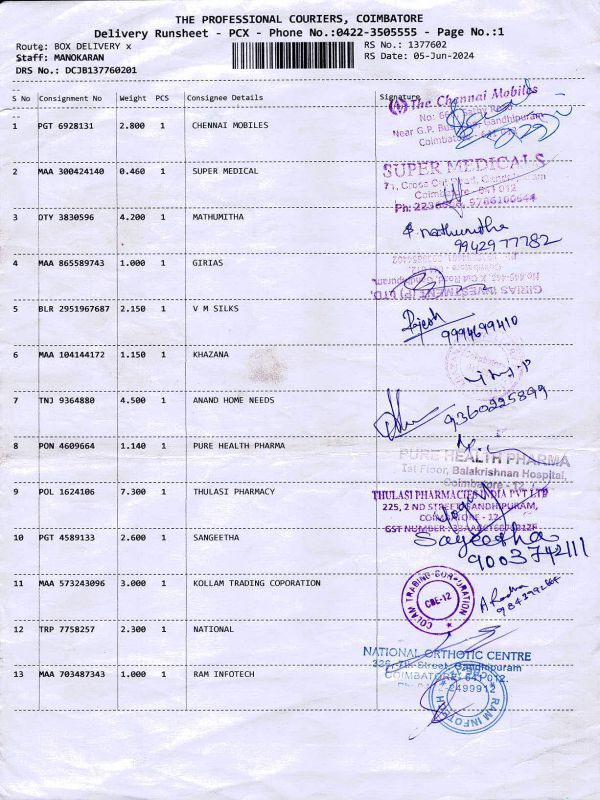 THE PROFESSIONAL COURIERS, COIMBATORE
Delivery Runsheet - PCX - Phone No.:0422-3505555 - Page No.:1
Route: BOX DELIVERY x
RS No.: 1377602
Staff: MANOKARAN
RS Date: 05-Jun-2024
DRS No.: DCJB137760201
S No Consignment No Weight PCS Consignee Details Signature
The Chennai Mobiles
1 PGT 6928131 2.800 1 CHENNAI MOBILES
Near G.P. Gandhipuram
Coimbatore
2 MAA 300424140 0.460 1 SUPER MEDICAL
SUPER MEDICALS
71, Cross Cut Road, Gandhipuram
Coimbatore - 641 012
3 DTY 3830596 4.200 1 MATHUMITHA
9942977782
4 MAA 865589743 1.000 1 GIRIAS
GIRIAS INVESTMENT (P) LTD.
5 BLR 2951967687 2.150 1 V M SILKS
Rajesh
9994699410
6 MAA 104144172 1.150 1 KHAZANA
7 TNJ 9364880 4.500 1 ANAND HOME NEEDS
9360225899
8 PON 4609664 1.140 1 PURE HEALTH PHARMA
PURE HEALTH PHARMA
1st Floor, Balakrishnan Hospital,
Coimbatore - 12
9 POL 1624106 7.300 1 THULASI PHARMACY
THULASI PHARMACIES INDIA PVT LTD
225, 2 ND STREET GANDHIPURAM,
COIMBATORE - 12
GST NUMBER
10 PGT 4589133 2.600 1 SANGEETHA
Sageetha
9003742111
11 MAA 573243096 3.000 1 KOLLAM TRADING COPORATION
COLAM TRADING CORPORATION
CBE-12
12 TRP 7758257 2.300 1 NATIONAL
NATIONAL ORTHOTIC CENTRE
326, 7th Street, Gandhipuram
COIMBATORE - 641 012.
2499912
13 MAA 703487343 1.000 1 RAM INFOTECH
RAM INFOTECH